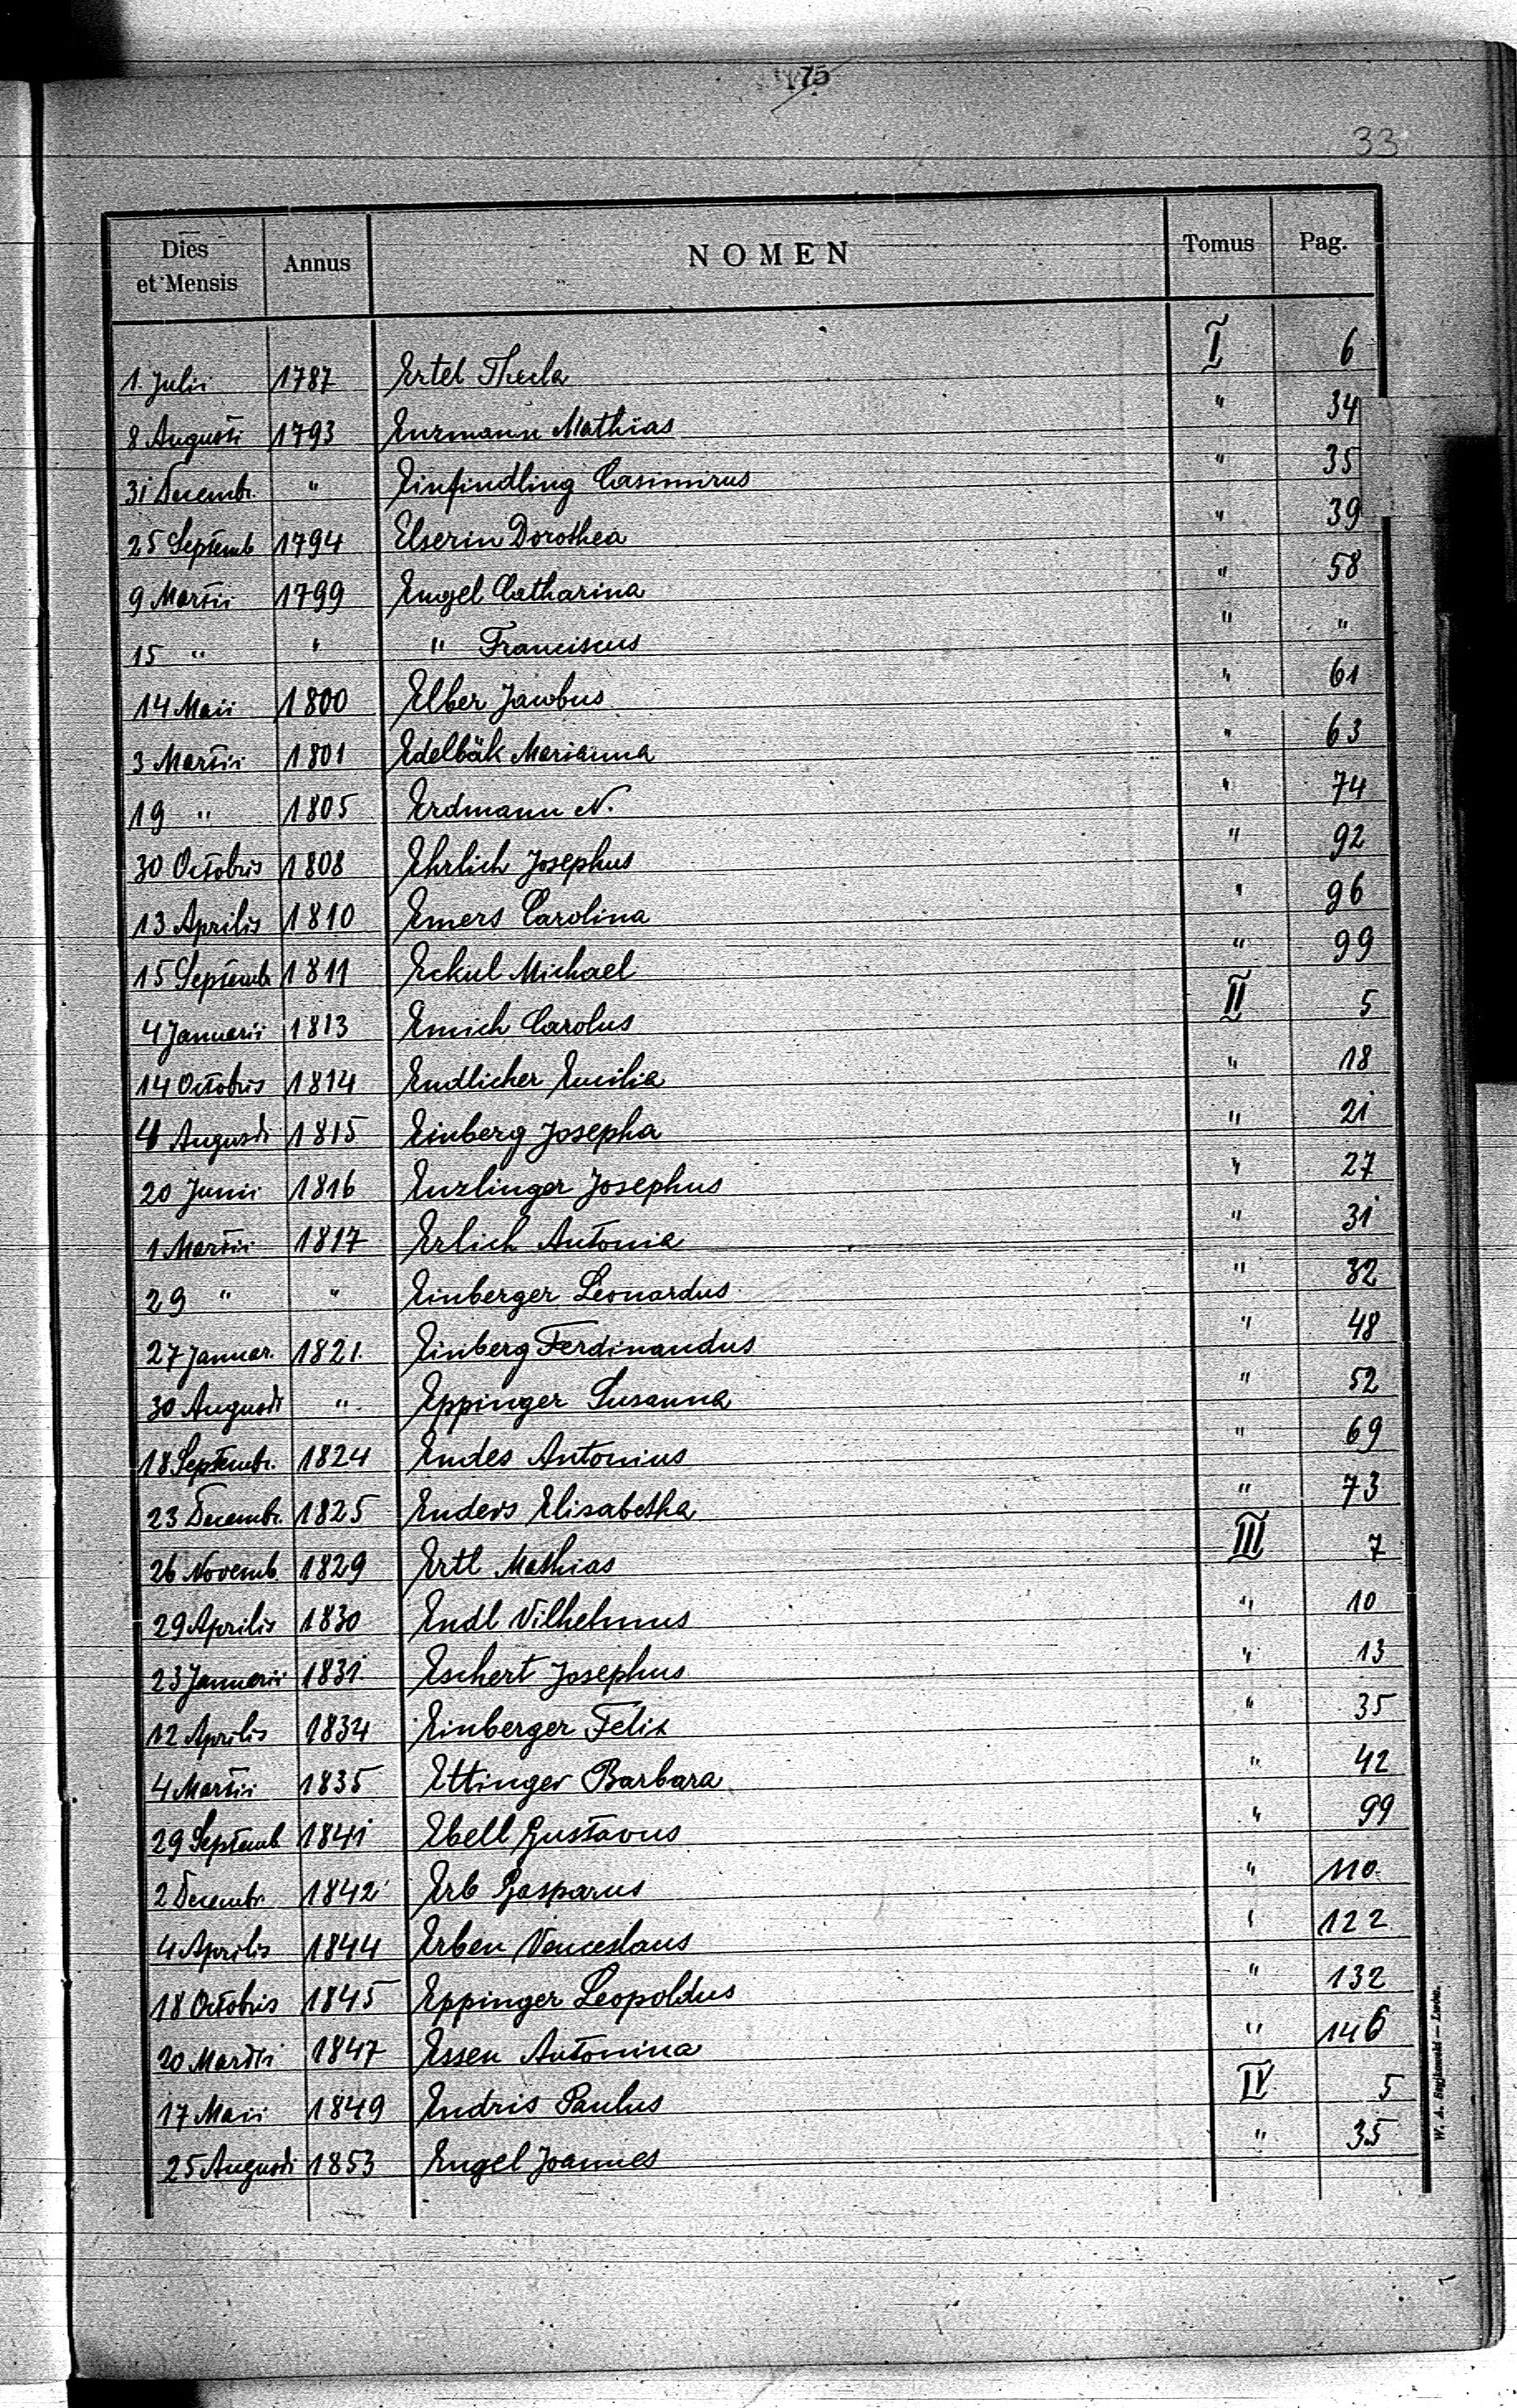 175
33
Dies et Mensis Annus NOMEN Tomus Pag.
1. Julii 1787 Ertel Thecla I 6
8 Augusti 1793 Enzmann Mathias " 34
31 Decembr. " Einfindling Casimirus " 35
25 Septemb 1794 Elserin Dorothea " 39
9 Martii 1799 Engel Catharina " 58
15 " " " Franciscus " "
14 Maii 1800 Elber Jacobus " 61
3 Martii 1801 Edelbäk Marianna " 63
19 " 1805 Erdmann N. " 74
30 Octobris 1808 Ehrlich Josephus " 92
13 Aprilis 1810 Emers Carolina " 96
15 Septemb 1811 Eckul Michael " 99
4 Januarii 1813 Emich Carolus II 5
14 Octobris 1814 Endlicher Emilia " 18
4 Augusti 1815 Einberg Josepha " 21
20 Junii 1816 Enzlinger Josephus " 27
1 Martii 1817 Erlich Antonia " 31
29 " " Einberger Leonardus " 32
27 Januar. 1821. Einberg Ferdinandus " 48
30 Augusti " Eppinger Susanna " 52
18 Septembr. 1824 Endes Antonius " 69
23 Decembr. 1825 Enders Elisabetha " 73
26 Novemb. 1829 Ertl Mathias III 7
29 Aprilis 1830 Endl Vilhelmus " 10
23 Januarii 1831 Eschert Josephus " 13
12 Aprilis 1834 Einberger Felix " 35
4 Martii 1835 Ettinger Barbara " 42
29 Septemb 1841 Ebell Gustavus " 99
2 Decembr. 1842 Erb Gasparus " 110
4 Aprilis 1844 Erben Venceslaus " 122
18 Octobris 1845 Eppinger Leopoldus " 132
20 Martii 1847 Essen Antonina " 146
17 Maii 1849 Endris Paulus IV 5
25 Augusti 1853 Engel Joannes " 35
W. A. — Lwów.